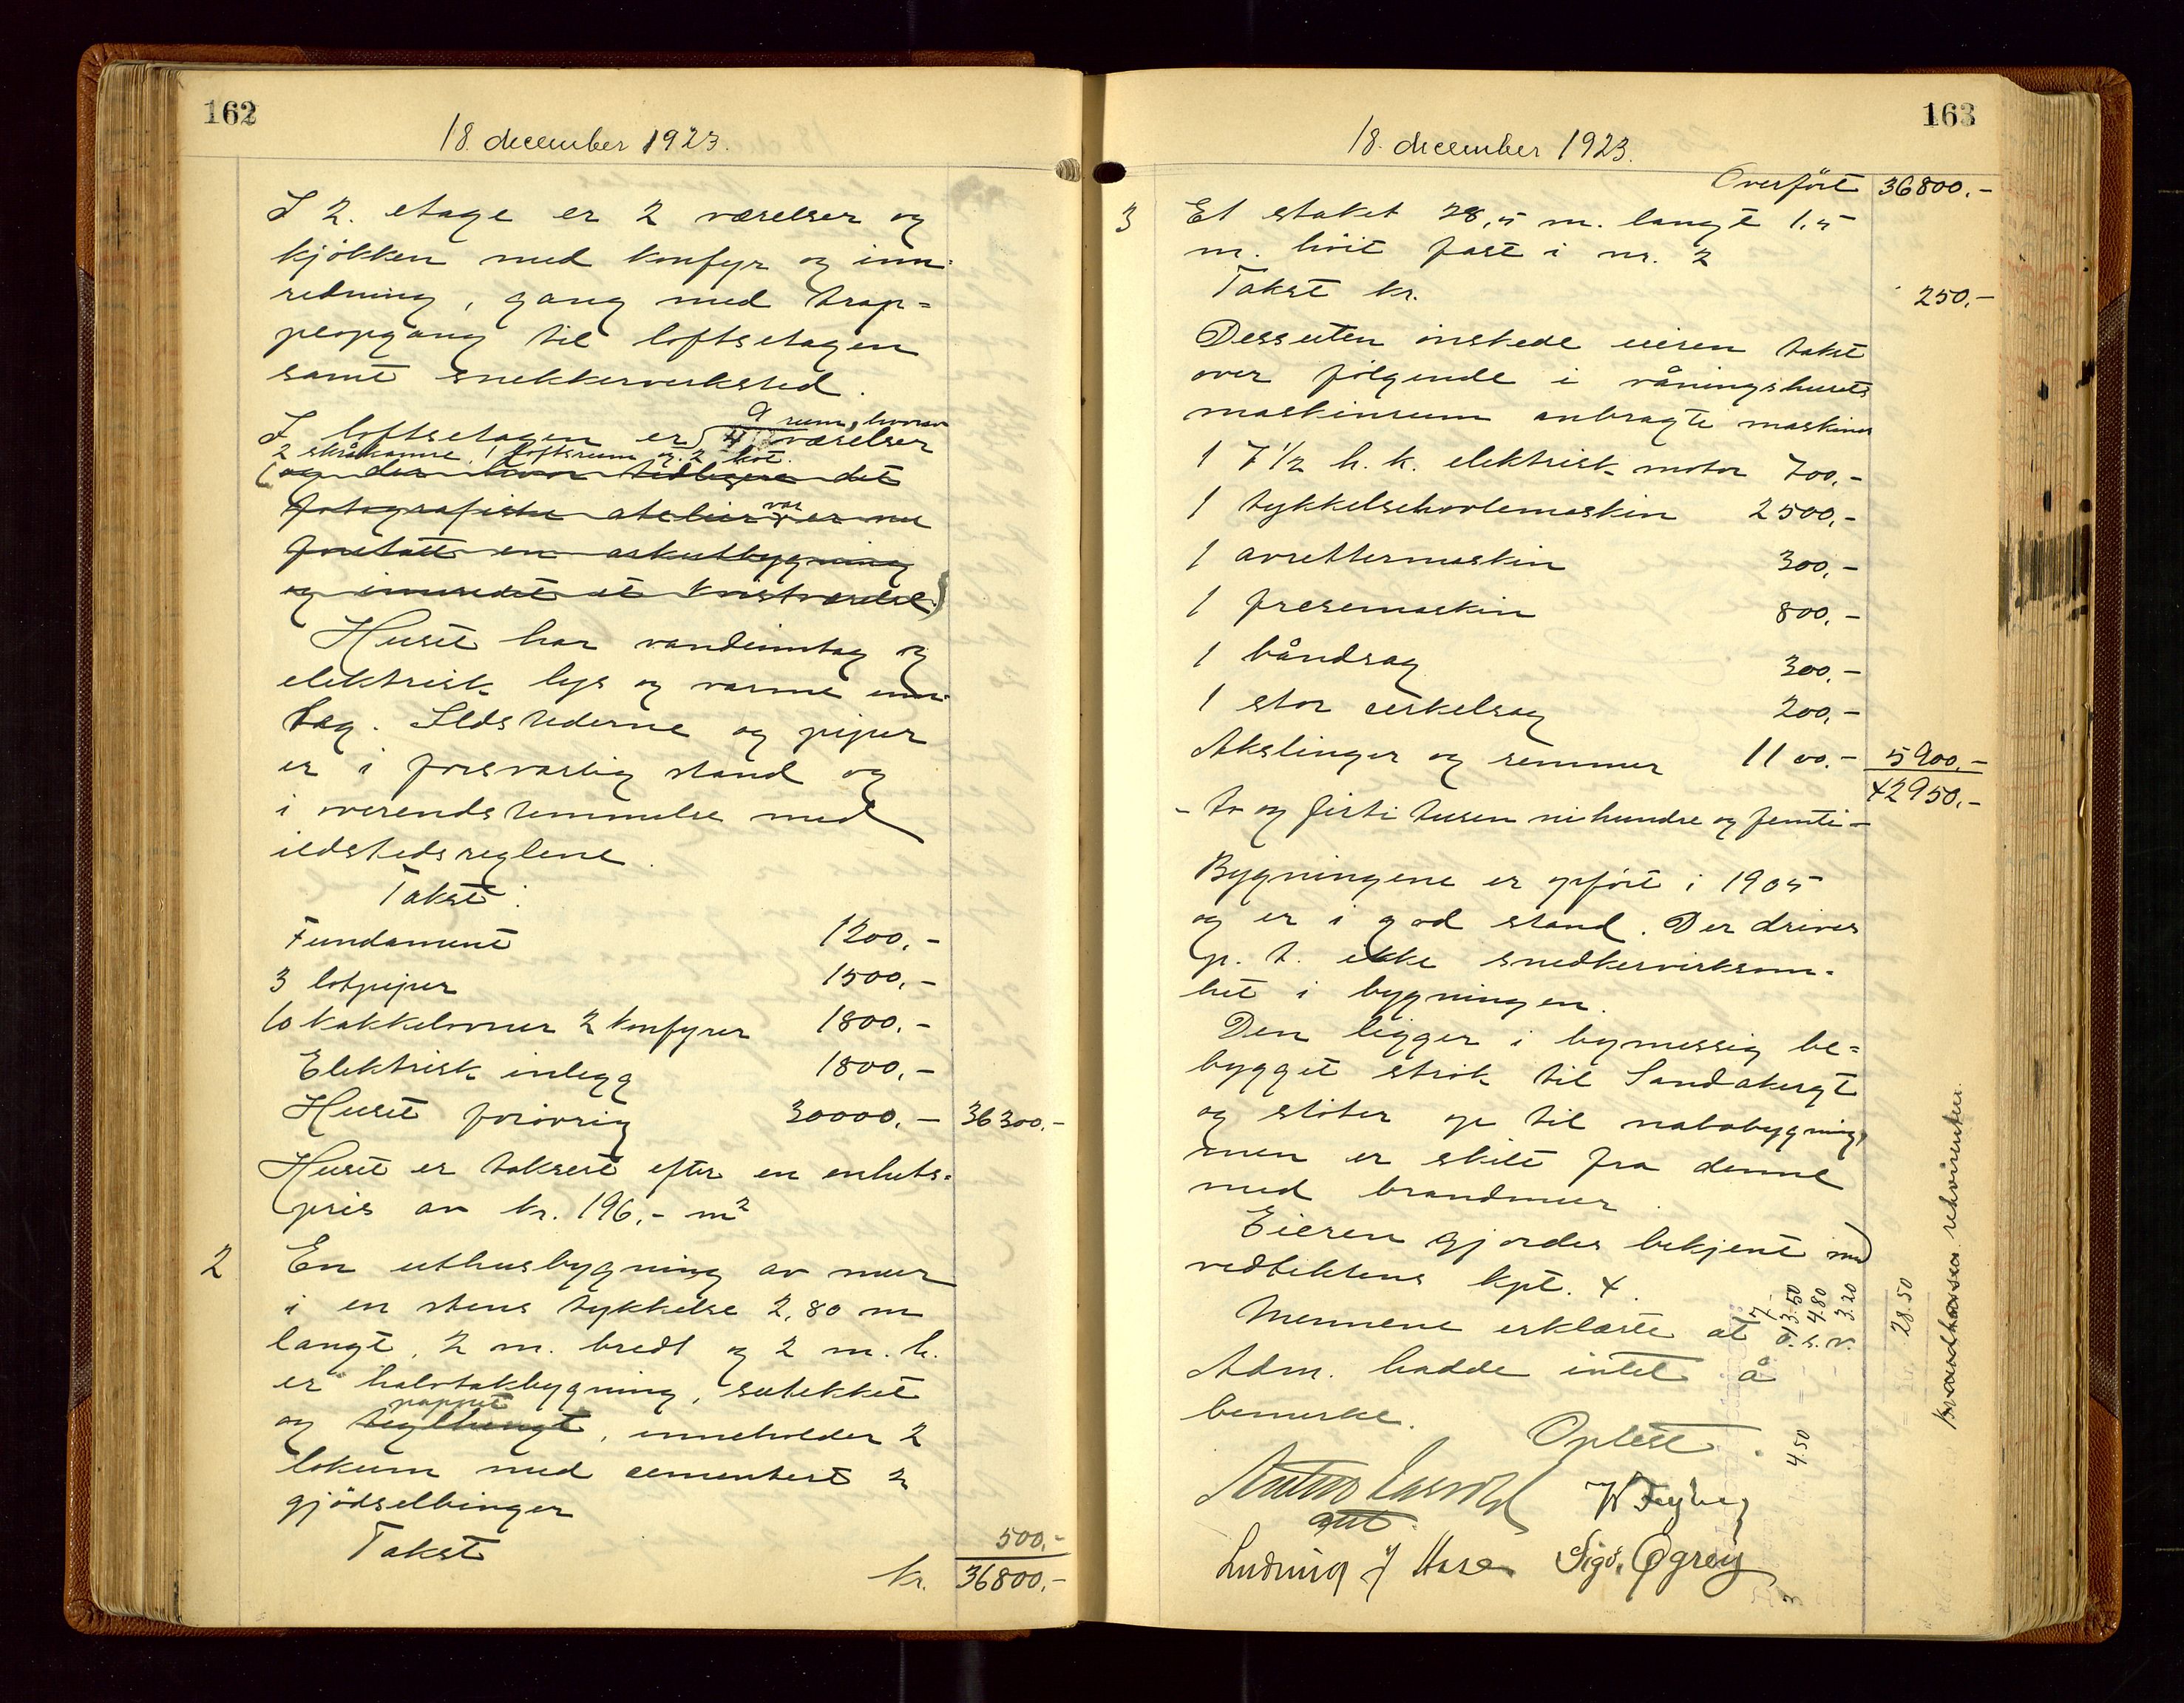 162
18. december 1923.
I 2. etage er 2 værelser og
kjökken med konfyr og inn-
redning, gang med trap=
peopgang til loftsetagen
samt snekkerverksted.
9 rum, hvorav
I loftsetagen er 4 værelser
2 skråkamre, 1 loftsrum og 2 kot.
(og der hvor tidligere det
fotografiske atelier var er nu
foretatt en arkutbygning
og innredet et kvistværelse)
Huset har vandinntag og
elektrisk lys og varme inn-
tag. Ildstederne og pipur
er i forsvarlig stand og
i overendstemmelse med
ildstedsreglene.
Takst:
Fundament 1200,-
3 lotpipur 1500,-
10 kakkelovner 2 konfyrer 1800,-
Elektrisk inlegg 1800,-
Huset foriövrig 30000,- 36300,-
Huset er taksert efter en enhets-
pris av kr. 196,- m²
2 En uthusbygning av mur
i en stens tykkelse 2,80 m
langt, 2 m. bredt og 2 m. h.
er halvtakbygning, sutekket
pappet
og teglhengt, inneholder 2
lokum med cementert
gjödselbinger
Takst 500,-
kr. 36800,-
163
18. december 1923.
Overfört 36800,-
3 Et staket 28,5 m. langt 1,5
m. höit fast i nr. 2
Takst kr. 250,-
Dessuten önskede eieren takst
over fölgende i våningshusets
maskinrum anbragte maskiner
1 7 1/2 h. k. elektrisk motor 700,-
1 tykkelsehövlemaskin 2500,-
1 avrettermaskin 300,-
1 fresemaskin 800,-
1 båndsag 300,-
1 stor cirkelsag 200,-
Akslinger og remmer 1100,- 5900,-
42950,-
- to og firti tusen nihundre og femti -
Bygningene er opfört i 1905
og er i god stand. Der drives
p. t. ikke snedkervirksom-
het i bygningen.
Den ligger i bymessig be=
bygget strök til Sandakergt
og stöter op til nabobygning,
men er skilt fra denne
med brandmur.
Eieren gjordes bekjent med
vedtektens kpt. 4.
Mennene erklærte at o. s. v.
Adm. hadde intet å
bemerke.
Oplest.
7.-
13.50
4.80
3.20
28.50
4.50
rekvirenten.
Ludvig J Hase Sigv. Øgrey
3